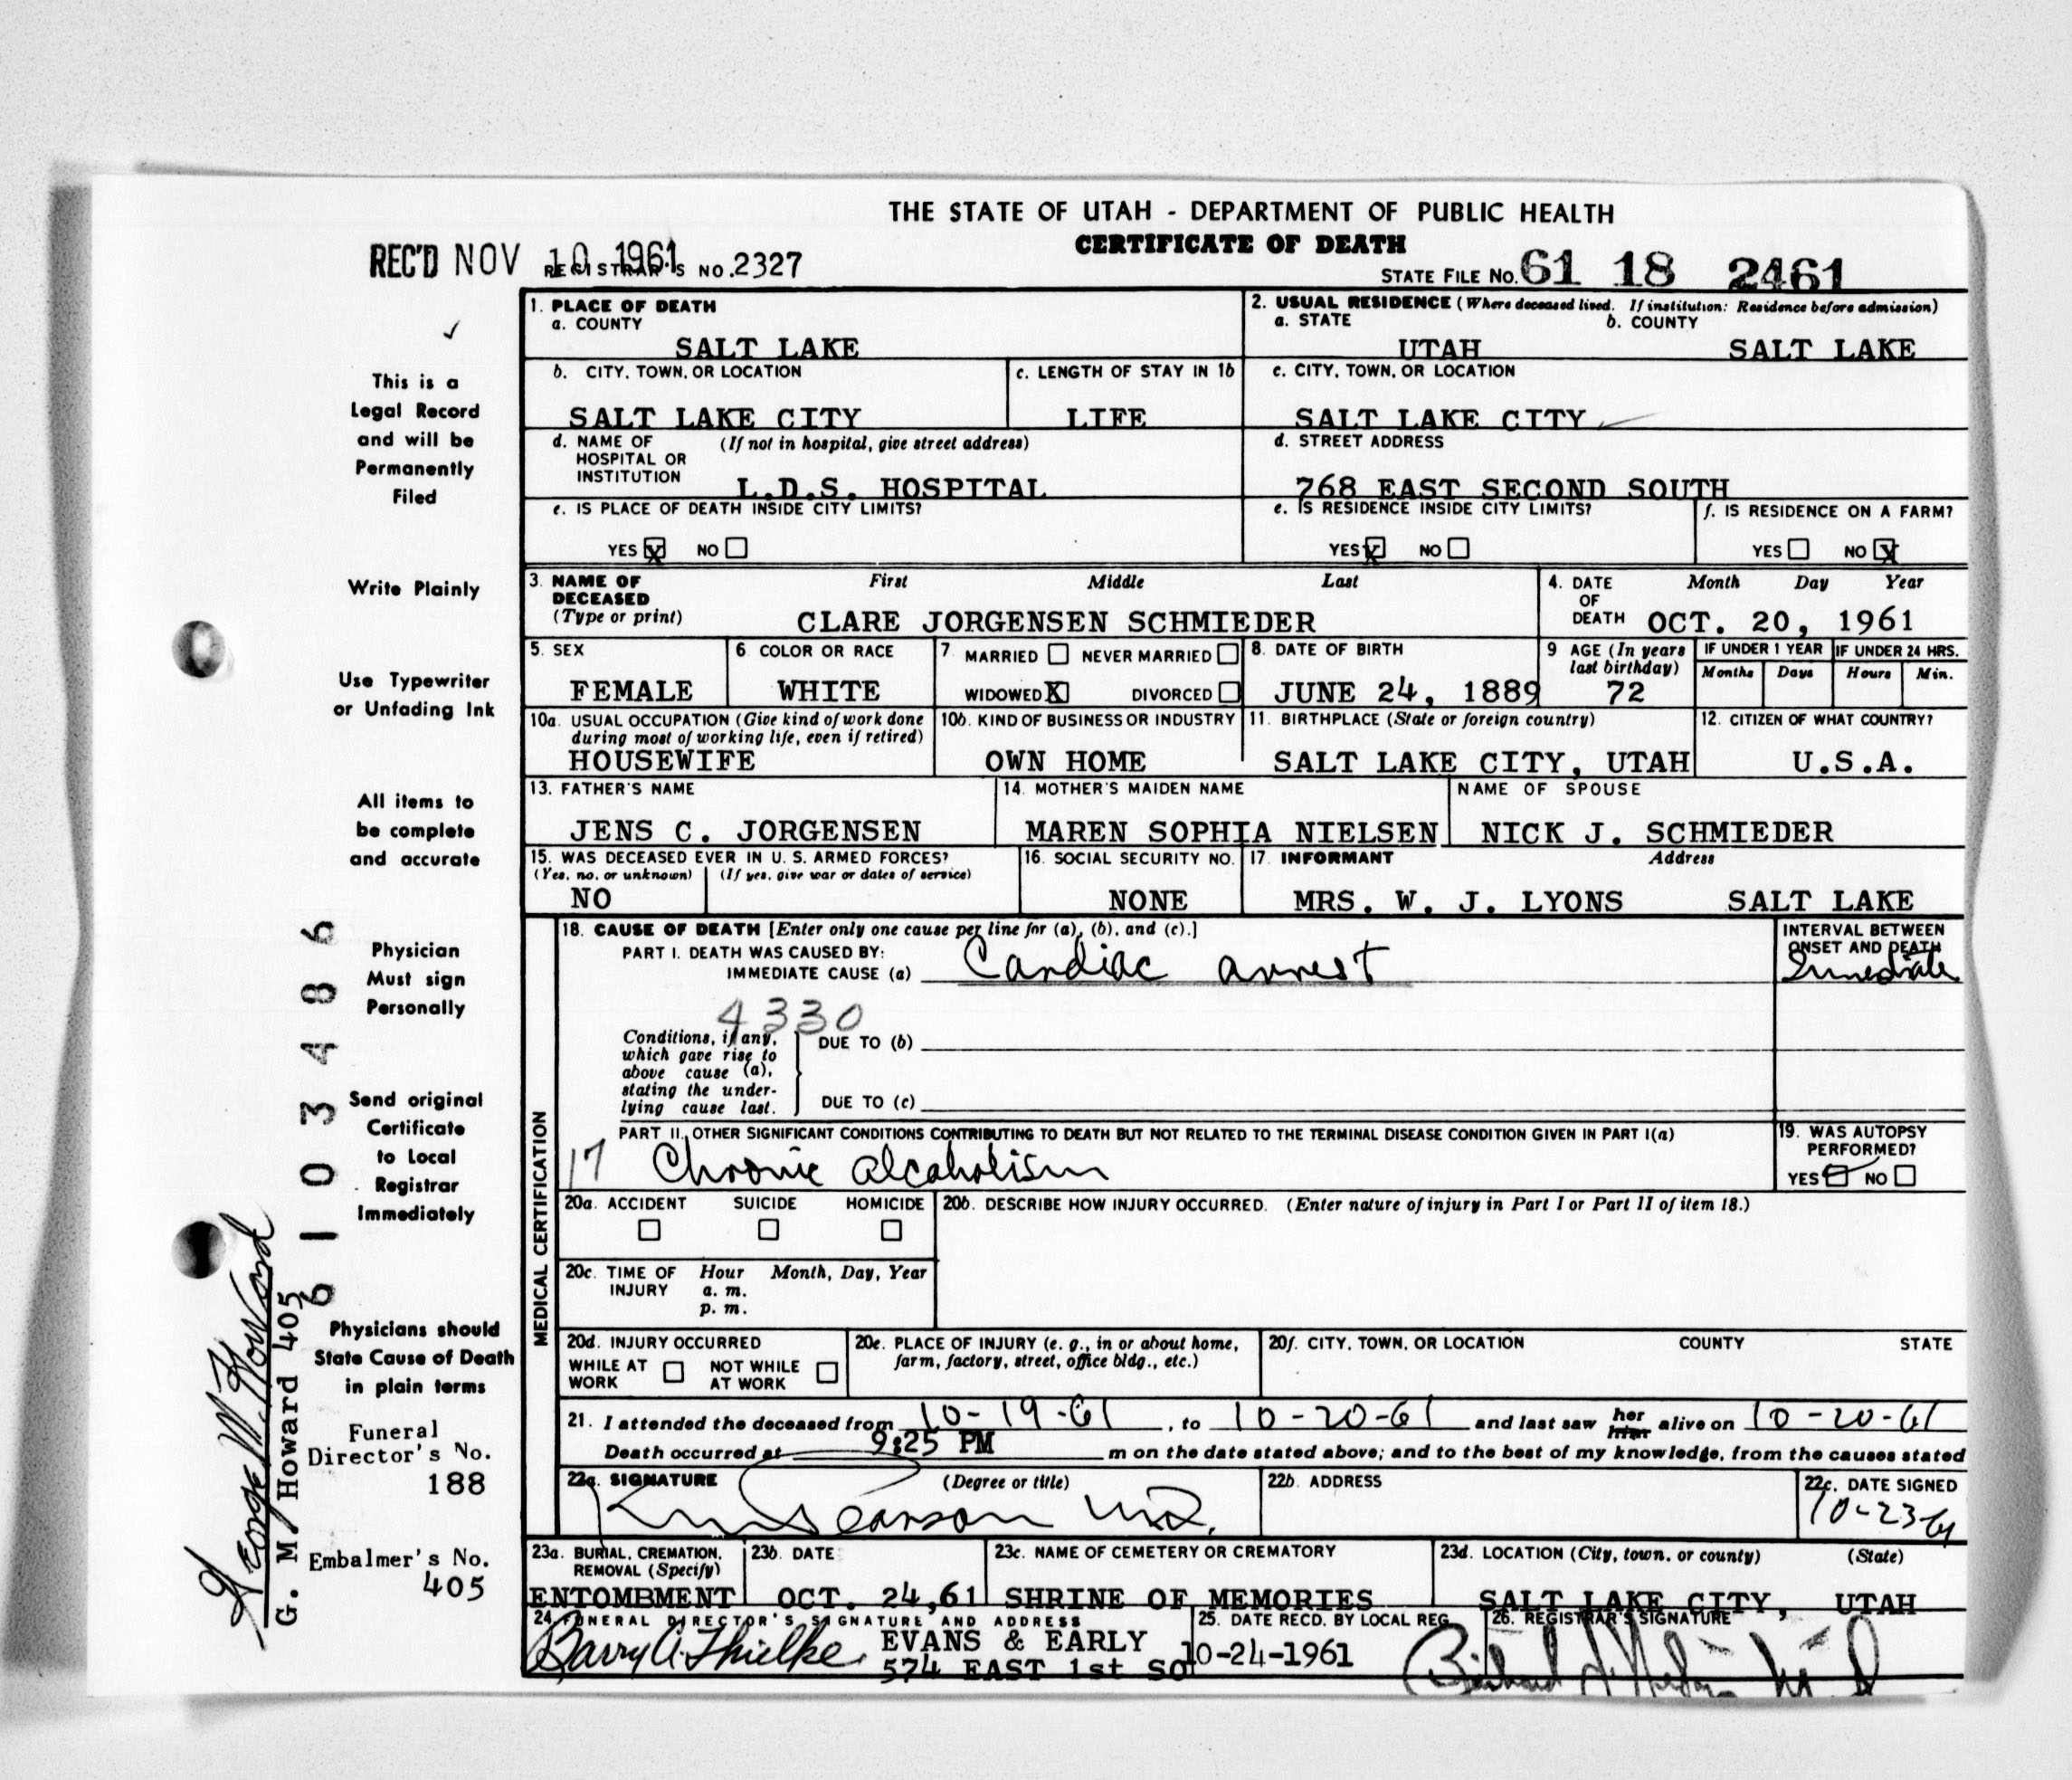 THE STATE OF UTAH - DEPARTMENT OF PUBLIC HEALTH
CERTIFICATE OF DEATH
REC'D NOV 10 1961 REGISTRAR'S NO. 2327
STATE FILE NO. 61 18 2461
1. PLACE OF DEATH
a. COUNTY
SALT LAKE
2. USUAL RESIDENCE (Where deceased lived. If institution: Residence before admission)
a. STATE b. COUNTY
UTAH SALT LAKE
b. CITY, TOWN, OR LOCATION
SALT LAKE CITY
c. LENGTH OF STAY IN 1b
LIFE
c. CITY, TOWN, OR LOCATION
SALT LAKE CITY
d. NAME OF (If not in hospital, give street address)
HOSPITAL OR
INSTITUTION
L.D.S. HOSPITAL
d. STREET ADDRESS
768 EAST SECOND SOUTH
e. IS PLACE OF DEATH INSIDE CITY LIMITS?
YES X NO
e. IS RESIDENCE INSIDE CITY LIMITS?
YES X NO
f. IS RESIDENCE ON A FARM?
YES NO X
3. NAME OF DECEASED (Type or print)
First Middle Last
CLARE JORGENSEN SCHMIEDER
4. DATE OF DEATH
Month Day Year
OCT. 20, 1961
5. SEX
FEMALE
6. COLOR OR RACE
WHITE
7. MARRIED NEVER MARRIED
WIDOWED X DIVORCED
8. DATE OF BIRTH
JUNE 24, 1889
9 AGE (In years last birthday)
72
IF UNDER 1 YEAR
Months Days
IF UNDER 24 HRS.
Hours Min.
10a. USUAL OCCUPATION (Give kind of work done
during most of working life, even if retired)
HOUSEWIFE
10b. KIND OF BUSINESS OR INDUSTRY
OWN HOME
11. BIRTHPLACE (State or foreign country)
SALT LAKE CITY, UTAH
12. CITIZEN OF WHAT COUNTRY?
U.S.A.
13. FATHER'S NAME
JENS C. JORGENSEN
14. MOTHER'S MAIDEN NAME
MAREN SOPHIA NIELSEN
NAME OF SPOUSE
NICK J. SCHMIEDER
15. WAS DECEASED EVER IN U. S. ARMED FORCES?
(Yes, no, or unknown) (If yes, give war or dates of service)
NO
16. SOCIAL SECURITY NO.
NONE
17. INFORMANT Address
MRS. W. J. LYONS SALT LAKE
MEDICAL CERTIFICATION
18. CAUSE OF DEATH [Enter only one cause per line for (a), (b), and (c).]
PART I. DEATH WAS CAUSED BY:
IMMEDIATE CAUSE (a) Cardiac arrest
INTERVAL BETWEEN
ONSET AND DEATH
Immediate
4330
Conditions, if any,
which gave rise to
above cause (a),
stating the under-
lying cause last.
DUE TO (b)
DUE TO (c)
PART II. OTHER SIGNIFICANT CONDITIONS CONTRIBUTING TO DEATH BUT NOT RELATED TO THE TERMINAL DISEASE CONDITION GIVEN IN PART I(a)
17 Chronic alcaholism
19. WAS AUTOPSY
PERFORMED?
YES NO
20a. ACCIDENT SUICIDE HOMICIDE
20b. DESCRIBE HOW INJURY OCCURRED. (Enter nature of injury in Part I or Part II of item 18.)
20c. TIME OF INJURY
Hour Month, Day, Year
a. m.
p. m.
20d. INJURY OCCURRED
WHILE AT WORK NOT WHILE AT WORK
20e. PLACE OF INJURY (e. g., in or about home,
farm, factory, street, office bldg., etc.)
20f. CITY, TOWN, OR LOCATION COUNTY STATE
21. I attended the deceased from 10-19-61, to 10-20-61 and last saw her him alive on 10-20-61
Death occurred at 9:25 PM m on the date stated above; and to the best of my knowledge, from the causes stated
22a. SIGNATURE (Degree or title)
Pearson M.D.
22b. ADDRESS
22c. DATE SIGNED
10-23-61
23a. BURIAL, CREMATION,
REMOVAL (Specify)
ENTOMBMENT
23b. DATE
OCT. 24,61
23c. NAME OF CEMETERY OR CREMATORY
SHRINE OF MEMORIES
23d. LOCATION (City, town, or county) (State)
SALT LAKE CITY, UTAH
24. FUNERAL DIRECTOR'S SIGNATURE AND ADDRESS
Barry A. Thielke EVANS & EARLY
574 EAST 1st SO
25. DATE RECD. BY LOCAL REG.
10-24-1961
26. REGISTRAR'S SIGNATURE
This is a
Legal Record
and will be
Permanently
Filed
Write Plainly
Use Typewriter
or Unfading Ink
All items to
be complete
and accurate
Physician
Must sign
Personally
Send original
Certificate
to Local
Registrar
Immediately
Physicians should
State Cause of Death
in plain terms
Funeral
Director's No.
188
Embalmer's No.
405
George M. Howard
G. M. Howard 405
6103486